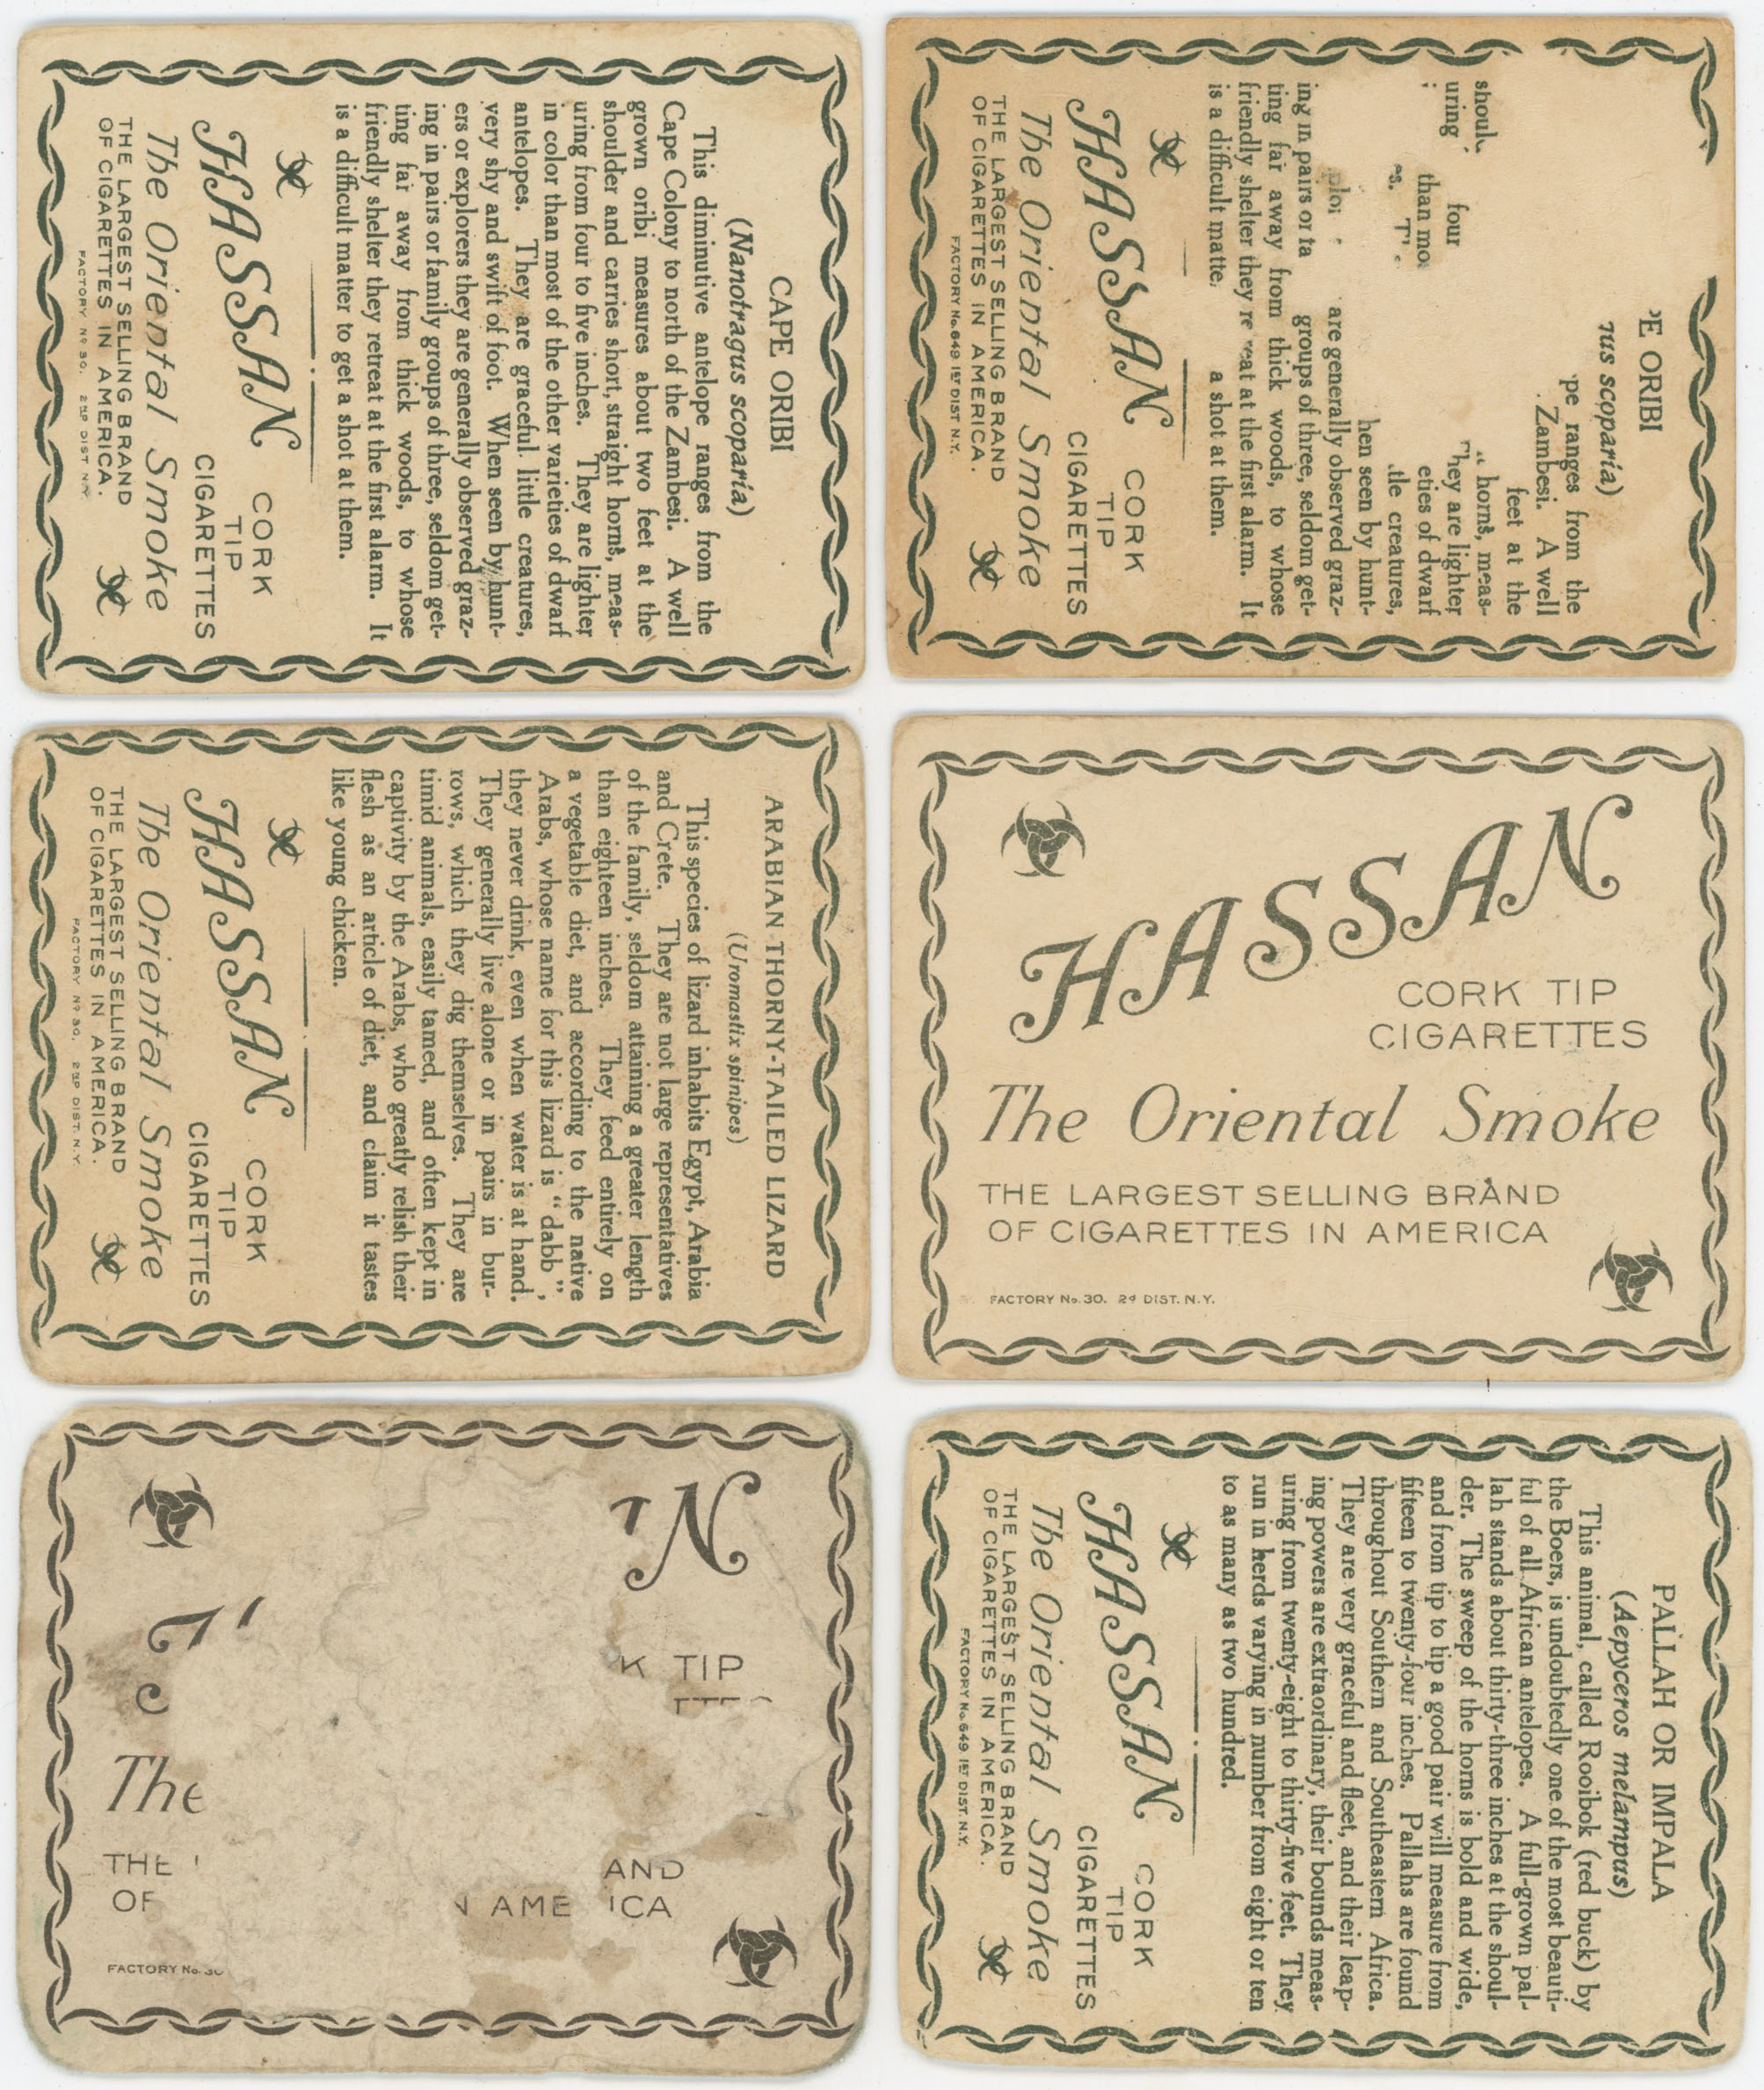 CAPE ORIBI
(Nanotragus scoparia)
This diminutive antelope ranges from the
Cape Colony to north of the Zambesi. A well
grown oribi measures about two feet at the
shoulder and carries short, straight horns, meas-
uring from four to five inches. They are lighter
in color than most of the other varieties of dwarf
antelopes. They are graceful little creatures,
very shy and swift of foot. When seen by hunt-
ers or explorers they are generally observed graz-
ing in pairs or family groups of three, seldom get-
ting far away from thick woods, to whose
friendly shelter they retreat at the first alarm. It
is a difficult matter to get a shot at them.
HASSAN
CORK
TIP
CIGARETTES
The Oriental Smoke
THE LARGEST SELLING BRAND
OF CIGARETTES IN AMERICA.
FACTORY No 30. 2ND DIST N.Y.
ORIBI
scoparia)
ranges from the
Zambesi. A well
feet at the
horns, meas-
uring four They are lighter
than eties of dwarf
creatures,
hen seen by hunt-
are generally observed graz-
ing in pairs or groups of three, seldom get-
ting far away from thick woods, to whose
friendly shelter they at the first alarm. It
is a difficult a shot at them.
HASSAN
CORK
TIP
CIGARETTES
The Oriental Smoke
THE LARGEST SELLING BRAND
OF CIGARETTES IN AMERICA.
FACTORY No. 649 1ST DIST. N.Y.
ARABIAN THORNY-TAILED LIZARD
(Uromastix spinipes)
This species of lizard inhabits Egypt, Arabia
and Crete. They are not large representatives
of the family, seldom attaining a greater length
than eighteen inches. They feed entirely on
a vegetable diet, and according to the native
Arabs, whose name for this lizard is "dabb",
they never drink, even when water is at hand.
They generally live alone or in pairs in bur-
rows, which they dig themselves. They are
timid animals, easily tamed, and often kept in
captivity by the Arabs, who greatly relish their
flesh as an article of diet, and claim it tastes
like young chicken.
HASSAN
CORK
TIP
CIGARETTES
The Oriental Smoke
THE LARGEST SELLING BRAND
OF CIGARETTES IN AMERICA.
FACTORY No 30. 2ND DIST. N.Y.
HASSAN
CORK TIP
CIGARETTES
The Oriental Smoke
THE LARGEST SELLING BRAND
OF CIGARETTES IN AMERICA
FACTORY No. 30. 2d DIST. N.Y.
N
K TIP
The
THE AND
OF AME ICA
FACTORY No. 30
PALLAH OR IMPALA
(Aepyceros melampus)
This animal, called Rooibok (red buck) by
the Boers, is undoubtedly one of the most beauti-
ful of all African antelopes. A full-grown pal-
lah stands about thirty-three inches at the shoul-
der. The sweep of the horns is bold and wide,
and from tip to tip a good pair will measure from
fifteen to twenty-four inches. Pallahs are found
throughout Southern and Southeastern Africa.
They are very graceful and fleet, and their leap-
ing powers are extraordinary, their bounds meas-
uring from twenty-eight to thirty-five feet. They
run in herds varying in number from eight or ten
to as many as two hundred.
HASSAN
CORK
TIP
CIGARETTES
The Oriental Smoke
THE LARGEST SELLING BRAND
OF CIGARETTES IN AMERICA.
FACTORY No. 649 1ST DIST. N.Y.